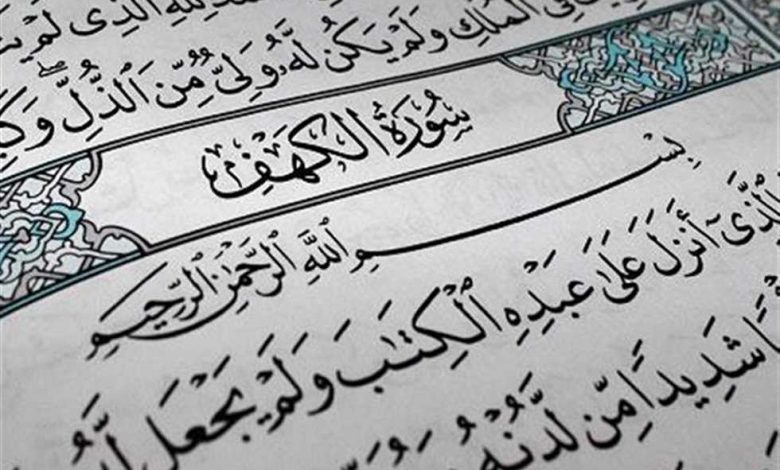 لِلَّهِ ٱلَّذِى لَمْ
فِى ٱلْمُلْكِ وَلَمْ يَكُن لَّهُۥ وَلِىٌّ مِّنَ ٱلذُّلِّ ۖ
سُورَةُ الْكَهْفِ
بِسْمِ ٱللَّهِ ٱلرَّحْمَٰنِ ٱلرَّحِيمِ
ٱلَّذِىٓ أَنزَلَ عَلَىٰ عَبْدِهِ ٱلْكِتَٰبَ وَلَمْ يَجْعَل لَّهُۥ
شَدِيدًا مِّن لَّدُنْهُ